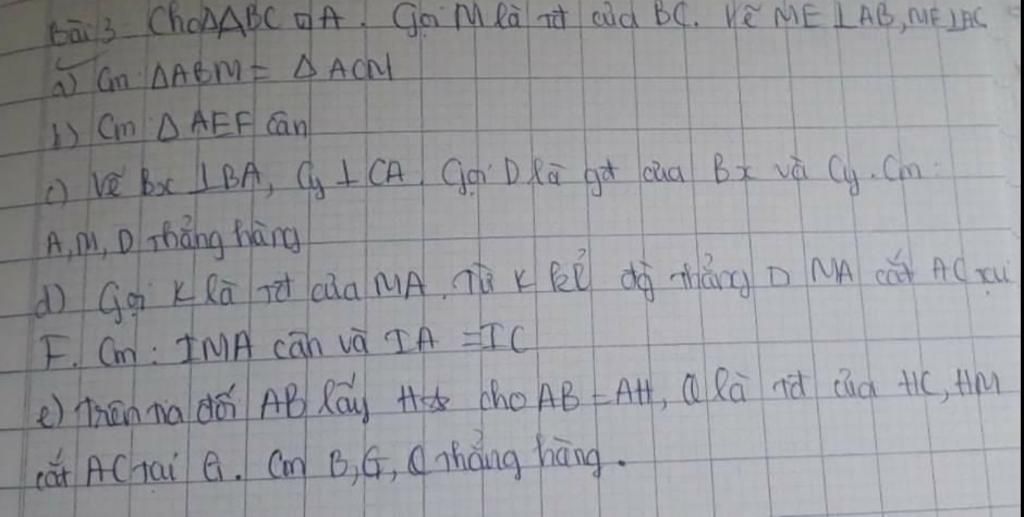 Bài 3 Cho ΔABC □ A. Gọi M là tđ của BC. Vẽ ME ⊥ AB, MF ⊥ AC
a) Cm ΔABM = ΔACM
b) Cm ΔAEF cân
c) Vẽ Bx ⊥ BA, Cy ⊥ CA. Gọi D là gđ của Bx và Cy. Cm:
A, M, D thẳng hàng
d) Gọi K là tđ của MA. Từ K kẻ đg thẳng □ MA cắt AC tại
F. Cm: IMA cân và IA = IC
e) Trên tia đối AB lấy H cho AB = AH, Q là tđ của HC, HM
cắt AC tại G. Cm B, G, Q thẳng hàng.